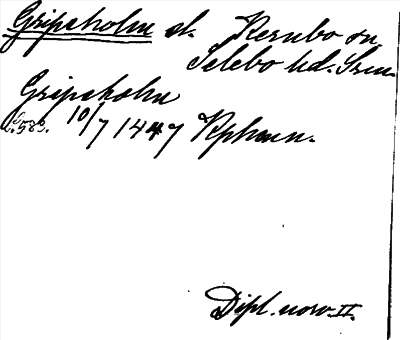 Gripsholm sl. Kernbo sn
Selebo hd. Srm.
Gripsholm
s. 583. 10/7 1447 Kphmn.
Dipl. norv. II.